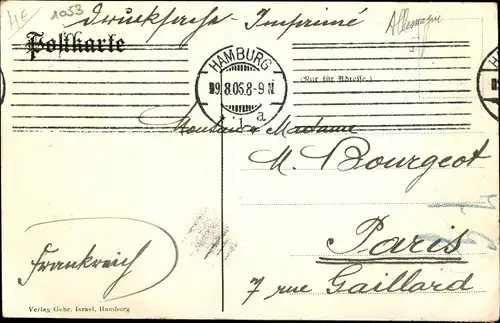 4E 1053
Drucksache - Imprimé
Allemagne
Postkarte
HAMBURG
9.8.06.8-9N
1 a
(Nur für Adresse.)
Monsieur & Madame
M. Bourgeot
Paris
7 rue Gaillard
Frankreich
Verlag Gebr. Israel, Hamburg